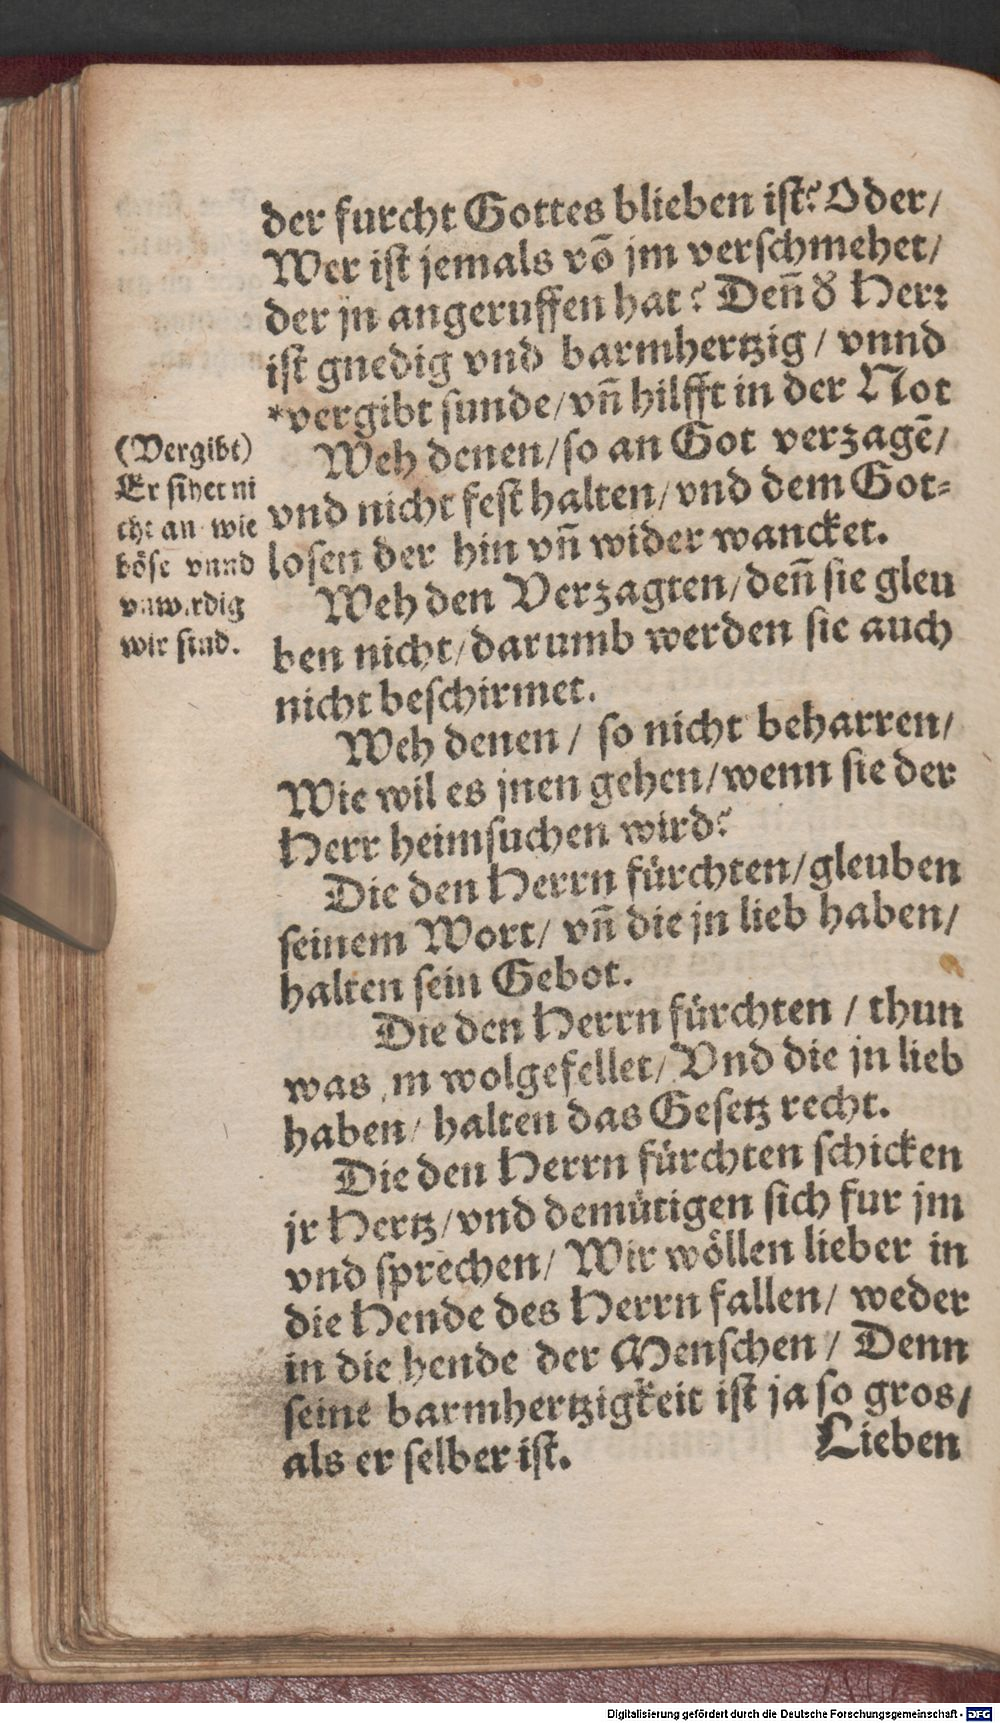 der furcht Gottes blieben ist? Oder/
Wer ist jemals võ jm verschmehet/
der jn angeruffen hat? Deñ d' Herr
ist gnedig vnd barmhertzig / vnnd
*vergibt sunde/vñ hilfft in der Not
Weh denen/so an Got verzagẽ/
vnd nicht fest halten/vnd dem Got-
losen der hin vñ wider wancket.
Weh den Verzagten/deñ sie gleu
ben nicht/darumb werden sie auch
nicht beschirmet.
Weh denen / so nicht beharren/
Wie wil es jnen gehen/wenn sie der
Herr heimsuchen wird?
Die den Herrn fürchten/gleuben
seinem Wort/ vñ die jn lieb haben/
halten sein Gebot.
Die den Herrn fürchten / thun
was jm wolgefellet/ Vnd die jn lieb
haben/ halten das Gesetz recht.
Die den Herrn fürchten schicken
jr Hertz/vnd demütigen sich fur jm
vnd sprechen/ Wir wöllen lieber in
die Hende des Herrn fallen/ weder
in die hende der Menschen / Denn
seine barmhertzigkeit ist ja so gros/
als er selber ist.
Lieben
(Vergibt)
Er sihet ni
cht an wie
böse vnnd
vnwirdig
wir sind.
Digitalisierung gefördert durch die Deutsche Forschungsgemeinschaft - DFG